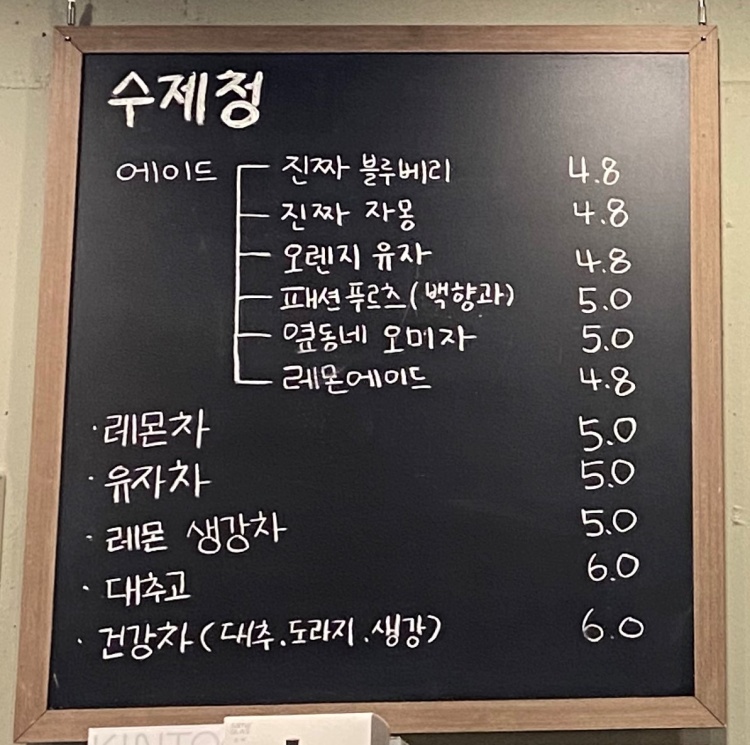 수제청
에이드 진짜 블루베리 4.8
진짜 자몽 4.8
오렌지 유자 4.8
패션푸르츠(백향과) 5.0
옆동네 오미자 5.0
레몬에이드 4.8
·레몬차 5.0
·유자차 5.0
·레몬 생강차 5.0
·대추고 6.0
·건강차(대추.도라지.생강) 6.0
KINTO